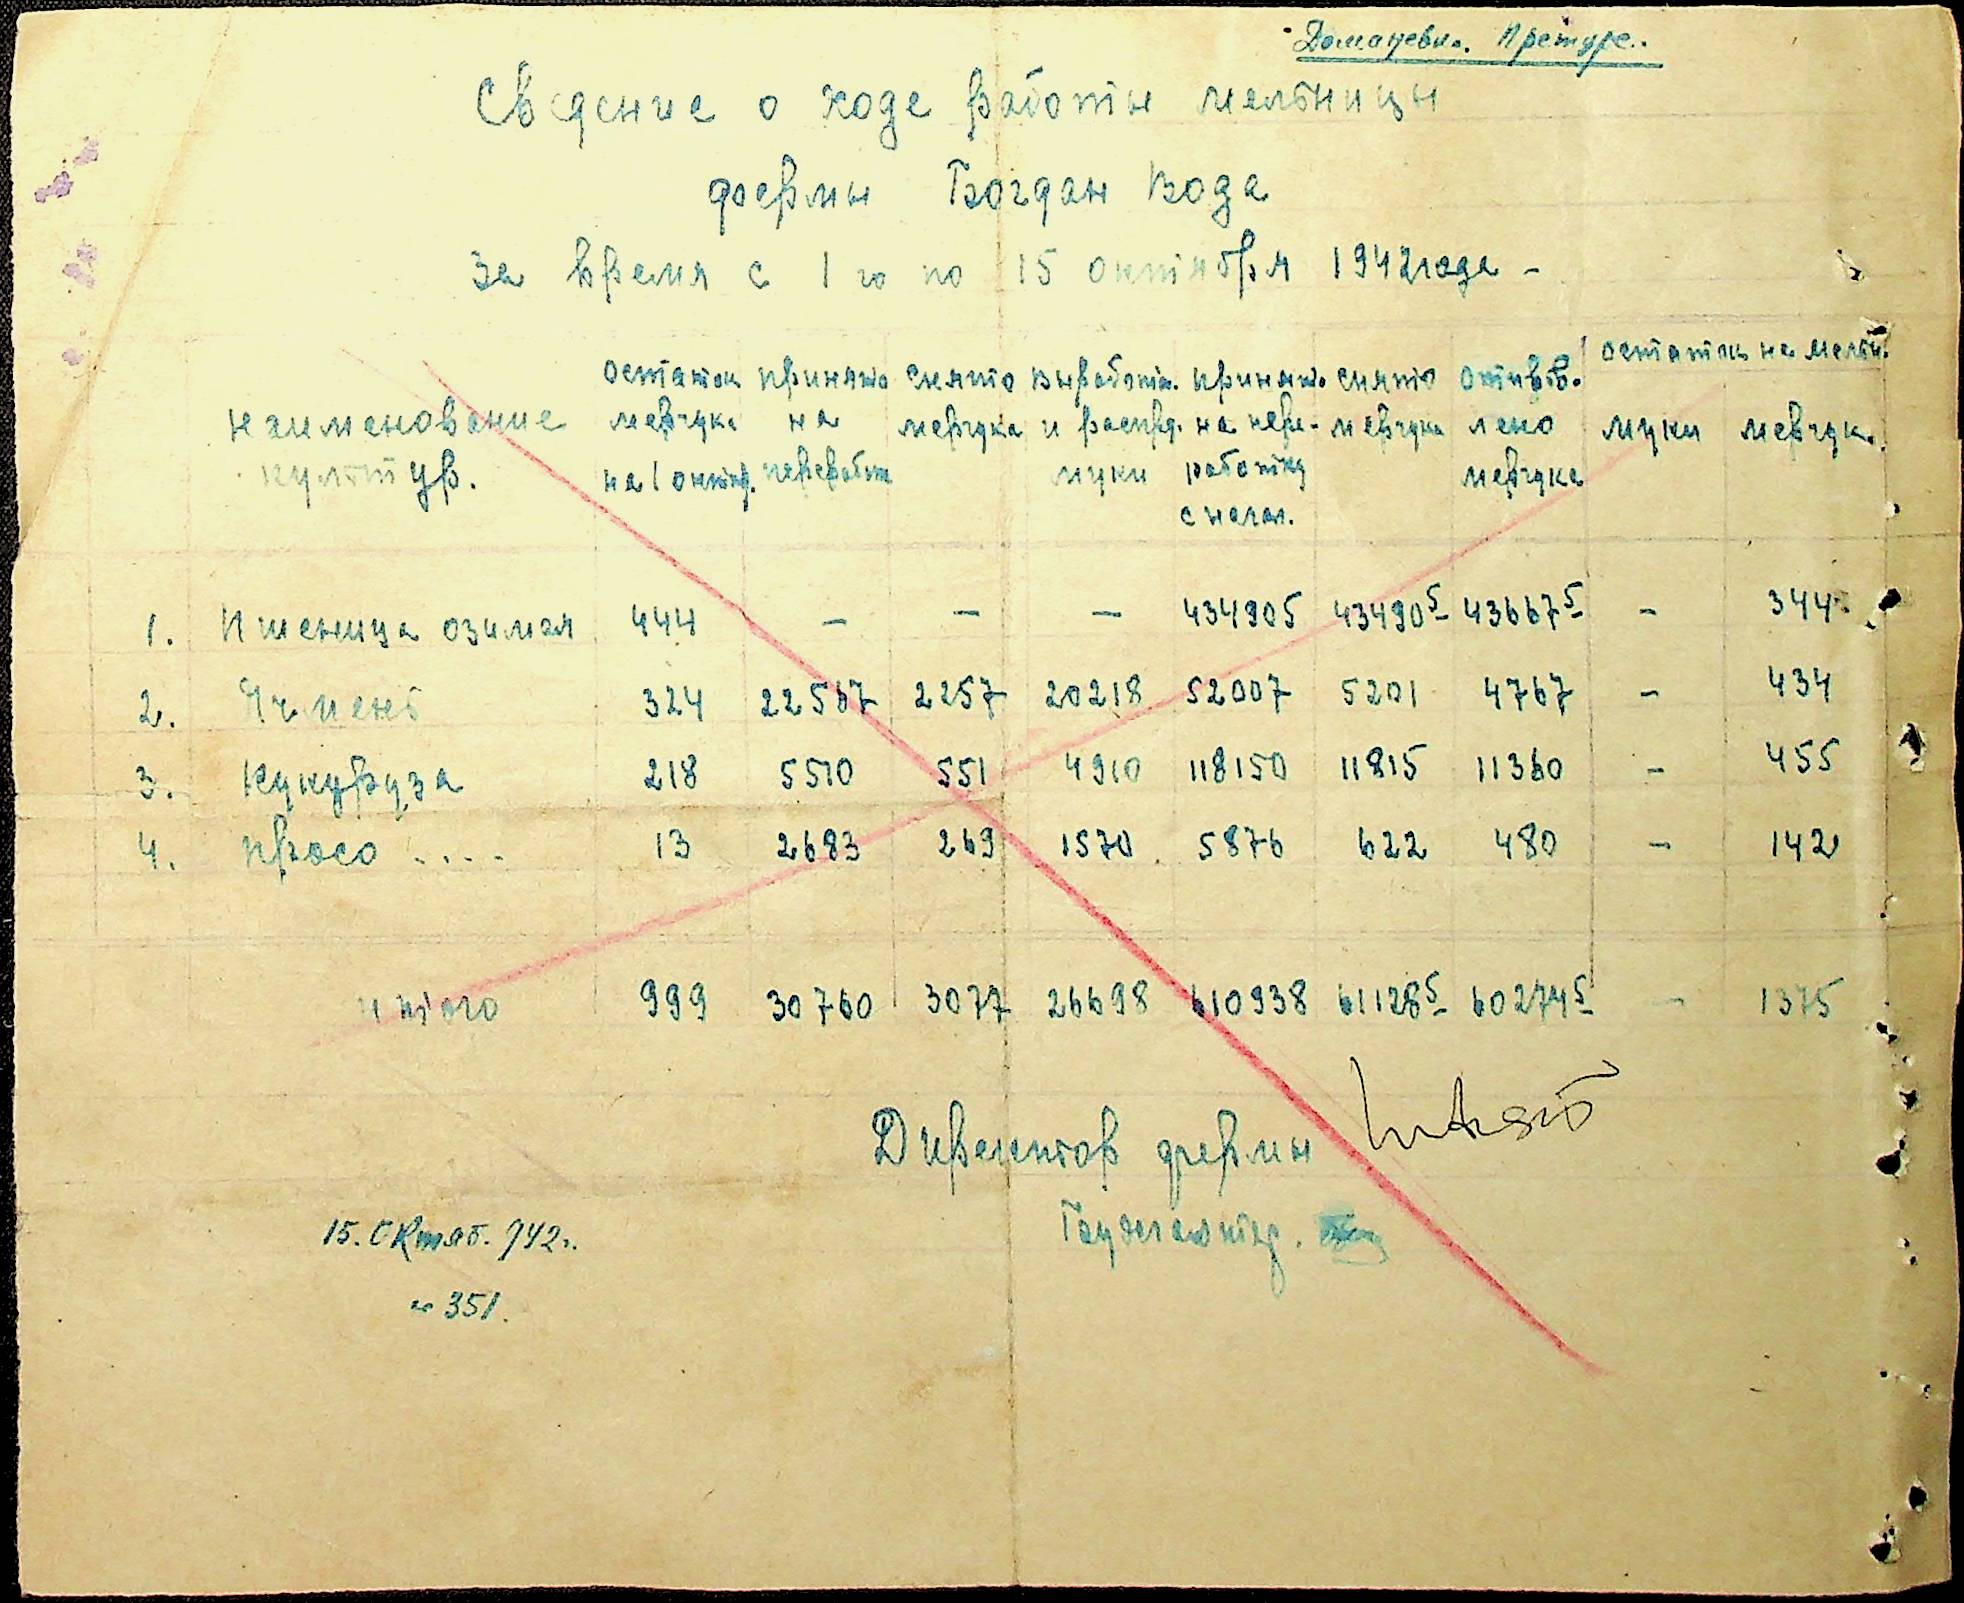 Доманевк. Претуре.
Сведение о ходе работы мельницы
фермы Богдан Вода
За время с 1го по 15 октября 1942 года -
Наименование культур.
Остаток мерчука на 1 октяб.
Принято на переработк
Снято мерчука
Выработк. и распред. муки
Принято на пере-работку с начал.
Снято мерчука
Отправ-лено мерчука
Остаток на мельн.
муки
мерчук.
1. Пшеница озимая 444 – – – 434905 43490⁵ 43667⁵ – 344
2. Ячмень 324 22567 2257 20218 52007 5201 4767 – 434
3. Кукуруза 218 5510 551 4910 118150 11815 11360 – 455
4. Просо .... 13 2683 269 1570 5876 622 480 – 142
Итого 999 30760 3077 26698 610938 61128⁵ 60274⁵ – 1375
Директор фермы
15. Октяб. 942г.
№ 351.